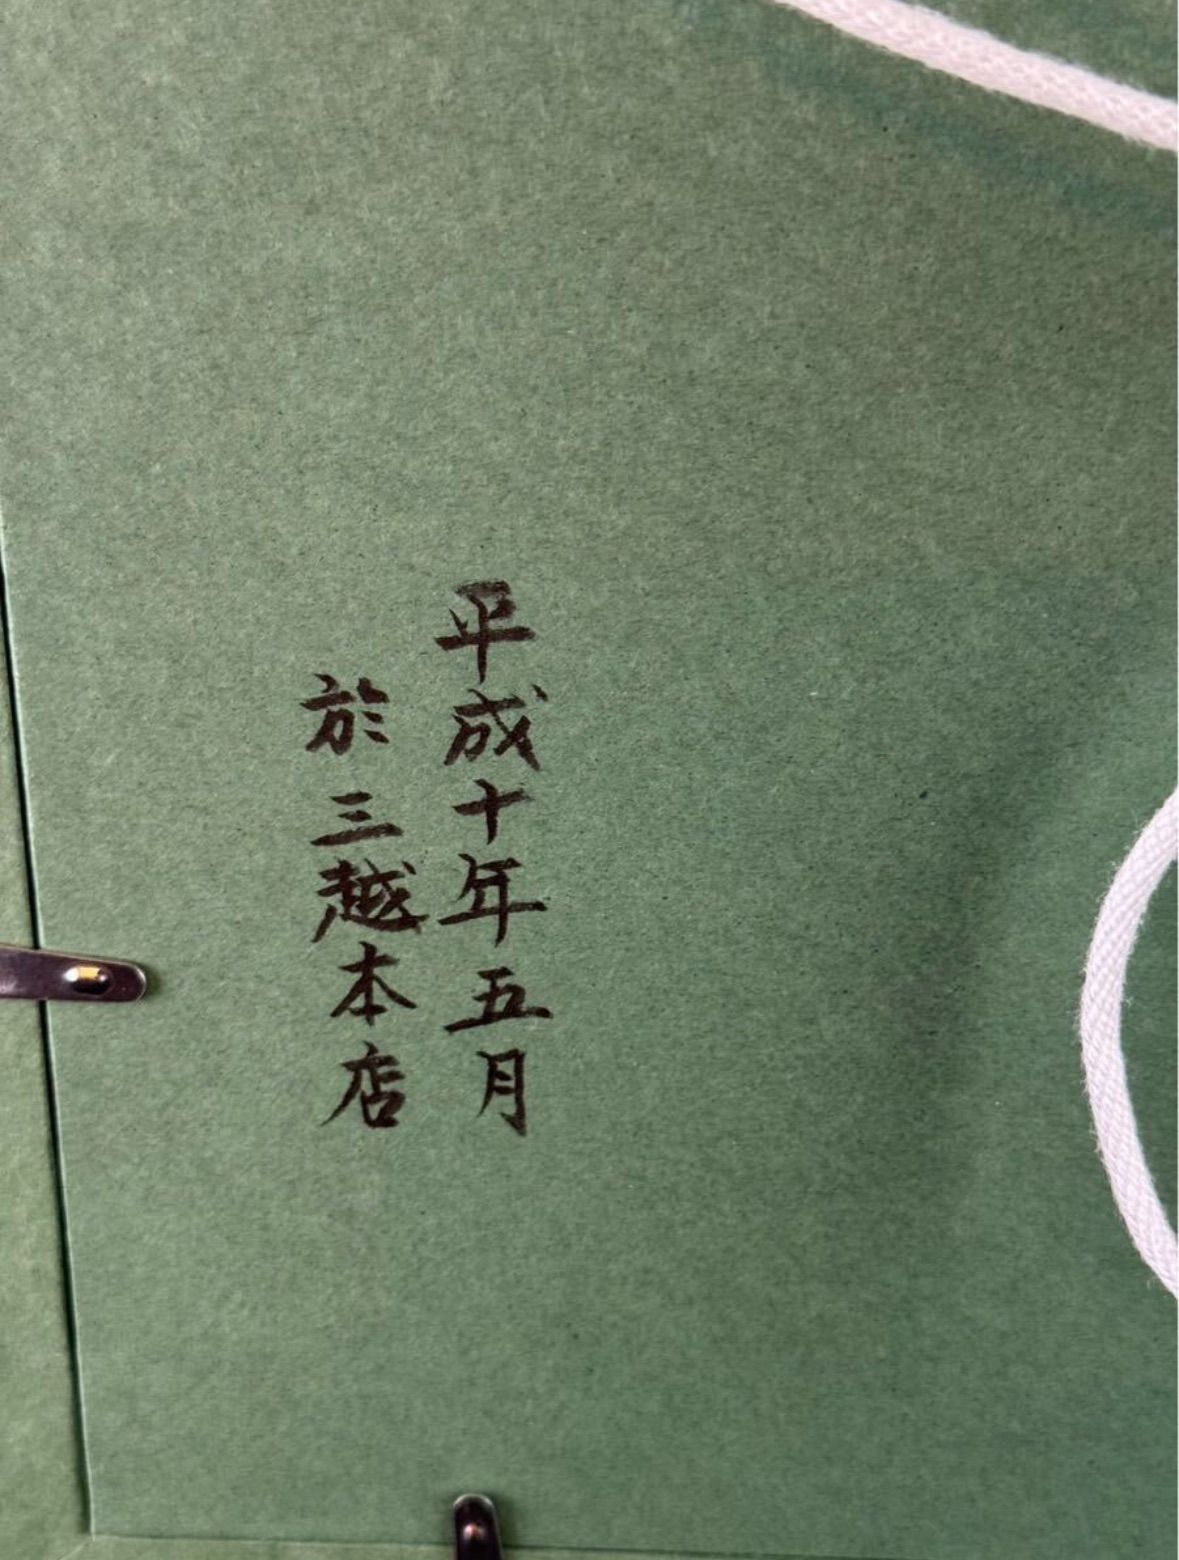 平成十年五月
於三越本店